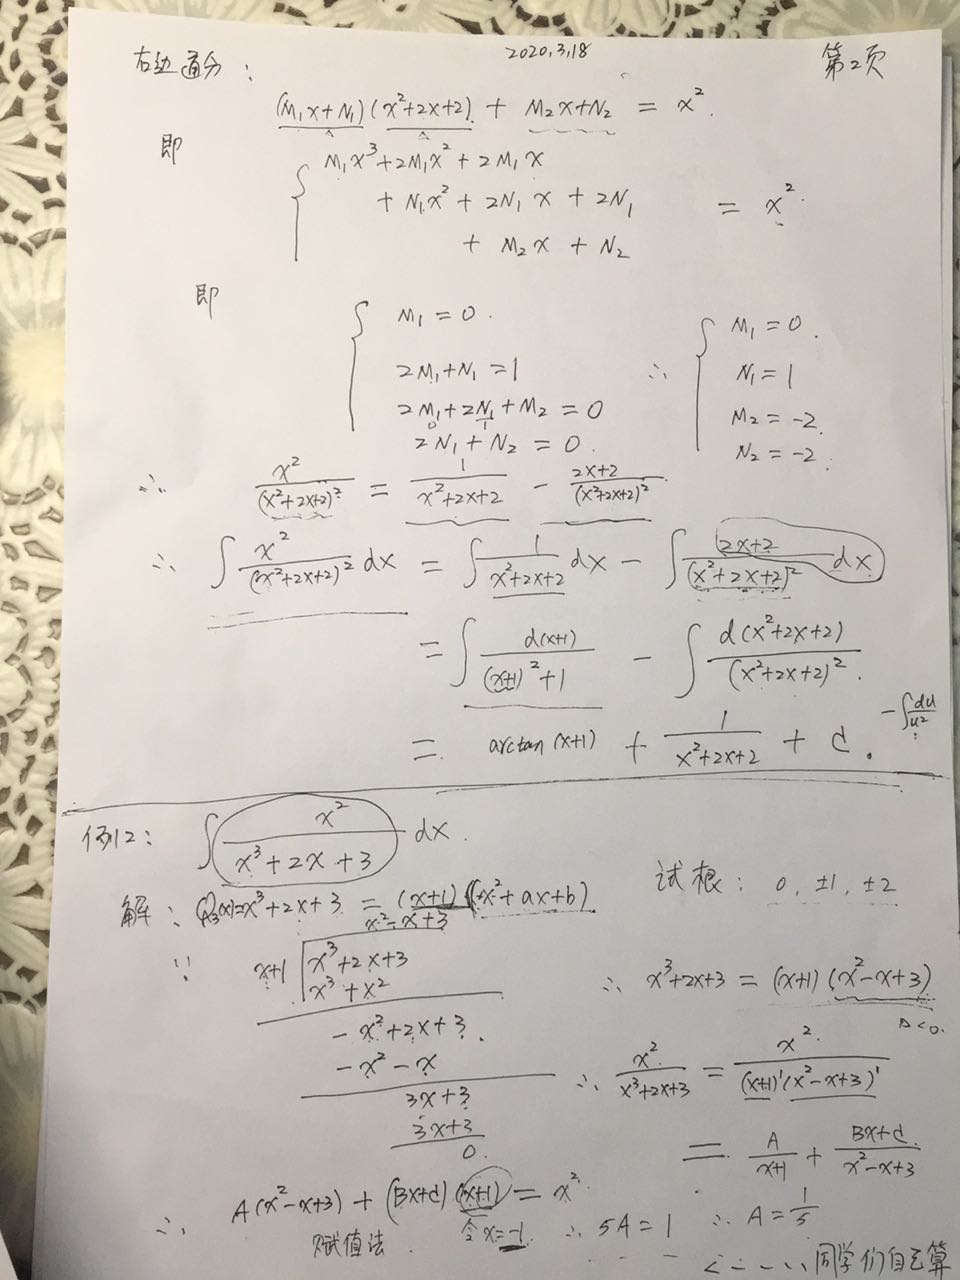 2020.3.18
右边通分： 第2页
(M₁x+N₁)(x²+2x+2) + M₂x+N₂ = x²
即
M₁x³+2M₁x²+2M₁x
+ N₁x²+2N₁x+2N₁ = x²
+ M₂x + N₂
即
M₁=0 ∴ M₁=0
2M₁+N₁=1 N₁=1
2M₁+2N₁+M₂=0 M₂=-2
0 1
2N₁+N₂=0 N₂=-2
∴ x²/(x²+2x+2)² = 1/(x²+2x+2) - (2x+2)/(x²+2x+2)²
∴ ∫ x²/(x²+2x+2)² dx = ∫ 1/(x²+2x+2) dx - ∫ (2x+2)/(x²+2x+2)² dx
= ∫ d(x+1)/((x+1)²+1) - ∫ d(x²+2x+2)/(x²+2x+2)²
= arctan(x+1) + 1/(x²+2x+2) + C. -∫du/u²
例12: ∫ x²/(x³+2x+3) dx
试根: 0, ±1, ±2
解: x³+2x+3 = (x+1)(x²+ax+b)
x²-x+3
∵ x+1 x³+2x+3
x³+x²
-x²+2x+3
-x²-x
3x+3
3x+3
0
∴ x³+2x+3 = (x+1)(x²-x+3)
Δ<0
∴ x²/(x³+2x+3) = x²/((x+1)¹(x²-x+3)¹)
= A/(x+1) + (Bx+C)/(x²-x+3)
∴ A(x²-x+3) + (Bx+C)(x+1) = x²
赋值法 令x=-1 ∴ 5A=1 ∴ A=1/5
同学们自己算